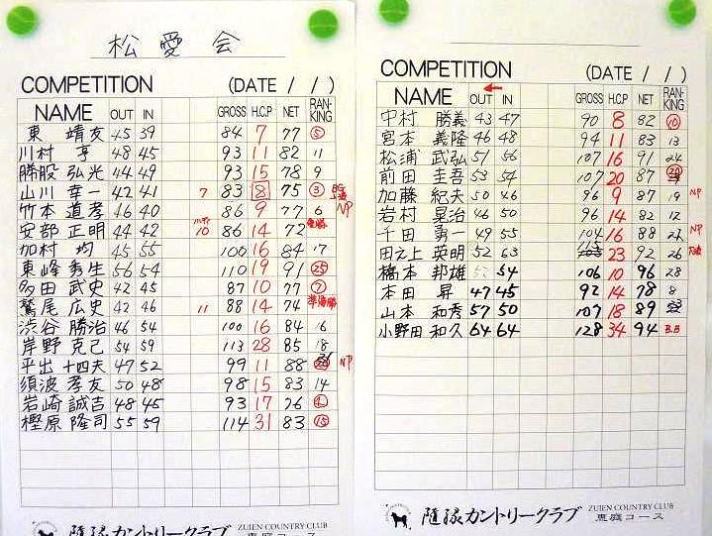 松愛会
COMPETITION (DATE / / )
NAME OUT IN GROSS H.C.P NET RAN-KING
東 靖友 45 39 84 7 77 5
川村 亨 48 45 93 11 82 11
勝股 弘光 44 49 93 15 78 9
山川 幸一 42 41 7 83 8 75 3
竹本 道孝 46 40 86 9 77 6 NP
安部 正明 44 42 10 86 14 72 優勝
加村 均 45 55 100 16 84 17
東峰 秀生 56 54 110 19 91 25
多田 武史 42 45 87 10 77 7
鷲尾 広史 42 46 11 88 14 74 準優勝
渋谷 勝治 46 54 100 16 84 16
岸野 克己 54 59 113 28 85 18
平出 十四夫 47 52 99 11 88 NP
須波 孝友 50 48 98 15 83 14
岩崎 誠吉 48 45 93 17 76 4
樫原 隆司 55 59 114 31 83 15
随縁カントリークラブ ZUIEN COUNTRY CLUB 恵庭コース
COMPETITION (DATE / / )
NAME OUT IN GROSS H.C.P NET RAN-KING
中村 勝義 43 47 90 8 82 10
宮本 義隆 46 48 94 11 83 13
松浦 武弘 51 56 107 16 91 24
前田 圭吾 53 54 107 20 87 20
加藤 紀夫 50 46 96 9 87 19 NP
岩村 晃治 46 50 96 14 82 12
千田 勇一 49 55 104 16 88 NP
田之上 英明 52 63 115 23 92 26
橋本 邦雄 54 106 10 96 28
本田 昇 47 45 92 14 78 8
山本 和秀 57 50 107 18 89
小野田 和久 64 64 128 34 94 B.B
随縁カントリークラブ ZUIEN COUNTRY CLUB 恵庭コース